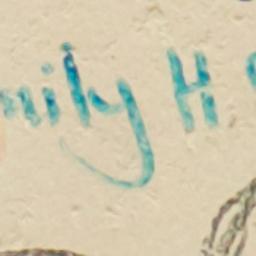 mily H